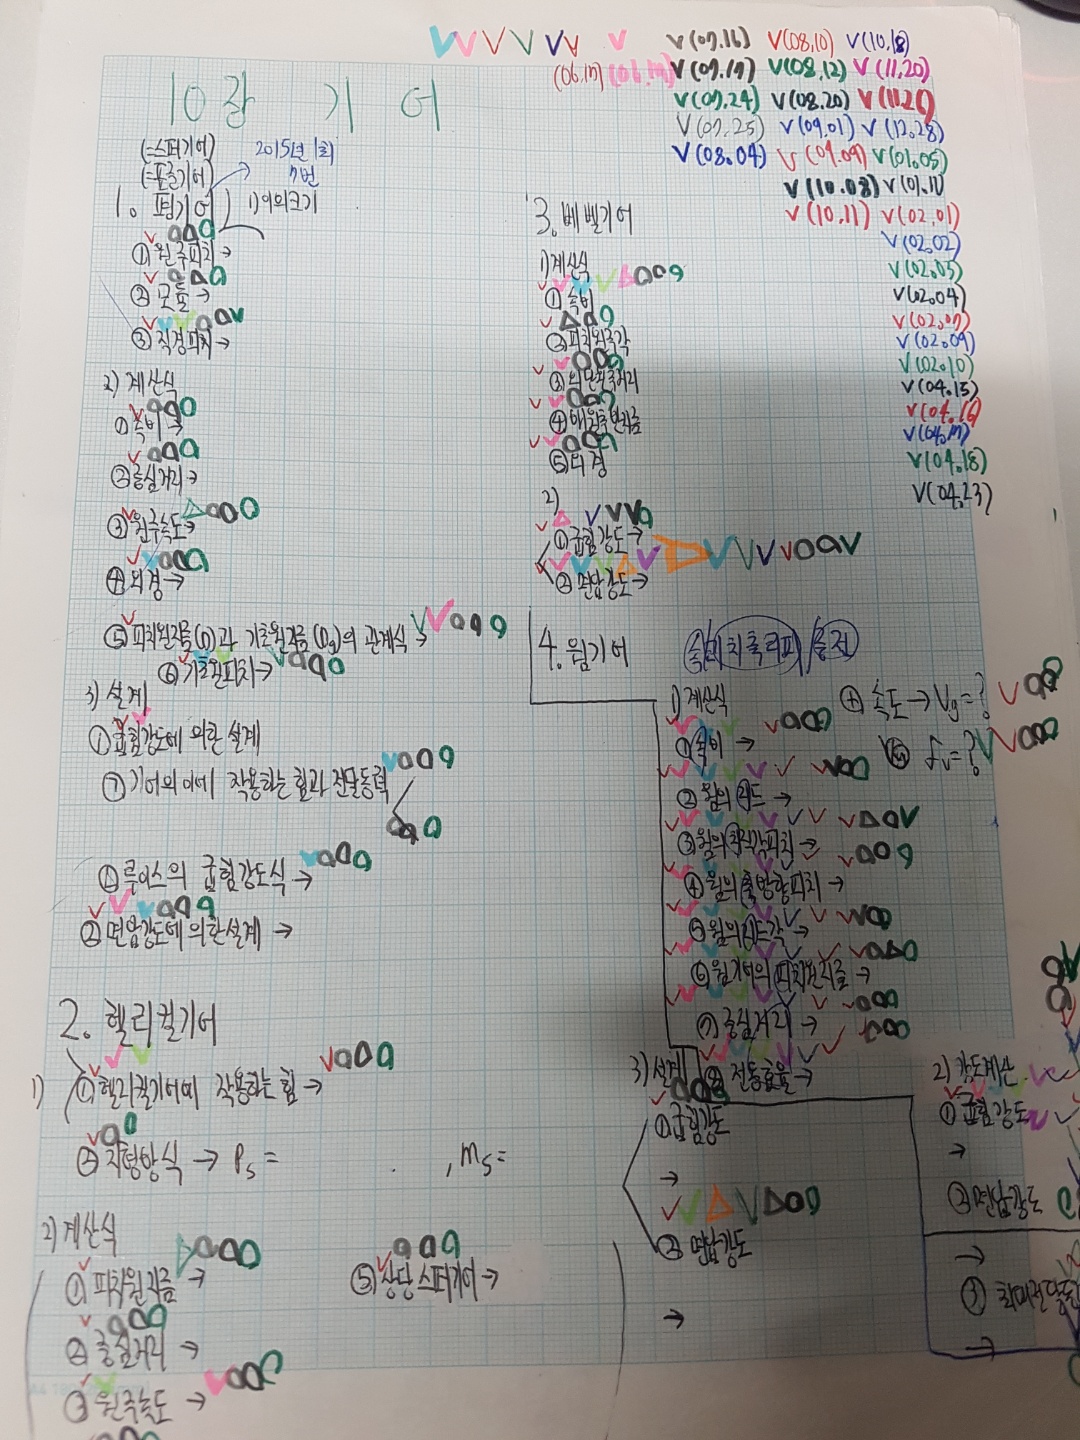 V(07.16) V(08.10) V(10.18)
(06.17) (06.17) V(07.17) V(08.12) V(11.20)
V(07.24) V(08.20) V(11.21)
V(07.25) V(09.01) V(12.28)
V(08.04) V(09.09) V(01.05)
V(10.08) V(01.11)
V(10.11) V(02.01)
V(02.02)
V(02.03)
V(02.04)
V(02.07)
V(02.09)
V(02.10)
V(04.15)
V(04.16)
V(04.17)
V(04.18)
V(04.23)
10장 기어
(=스퍼기어)
(=표준기어)
2015년 1회
7번
1. 평기어
1) 이의크기
① 원주피치→
② 모듈→
③ 직경피치→
2) 계산식
① 속비→
② 중심거리→
③ 원주속도→
④ 외경→
⑤ 피치원지름(D)과 기초원지름(Dg)의 관계식→
⑥ 기초원피치→
3) 설계
① 굽힘강도에 의한 설계
㉠ 기어의 이에 작용하는 힘과 전달동력
㉡ 루이스의 굽힘강도식→
② 면압강도에 의한설계→
2. 헬리컬기어
1) ① 헬리컬기어에 작용하는 힘→
② 치형방식→ Ps= , ms=
2) 계산식
① 피치원지름→
② 중심거리→
③ 원주속도→
⑤ 상당스퍼기어→
3. 베벨기어
1) 계산식
① 속비
② 피치원추각
③ 외단원추거리
④
⑤ 외경
2)
① 굽힘강도→
② 면압강도→
4. 웜기어
속 피치축리피 중전
1) 계산식
① 속비→
② 웜의 리드→
③ 웜의 치직각피치→
④ 웜의 축방향피치→
⑤ 웜의 리드각→
⑥ 웜기어의 피치원지름→
⑦ 중심거리→
⑧ 전동효율→
속도→Vg=?
fv=?
3) 설계
① 굽힘강도
→
② 면압강도
→
2) 강도계산
① 굽힘강도
→
② 면압강도
→
③ 최대전달동
→